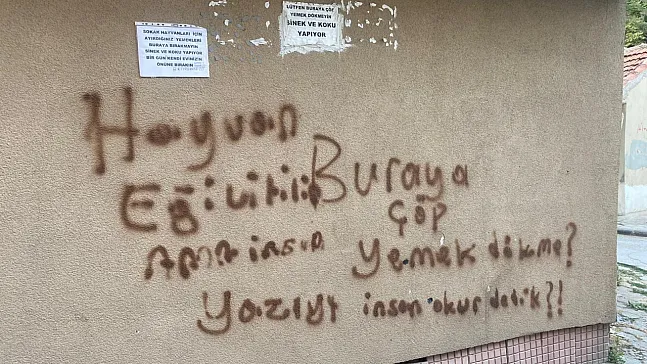 SOKAK HAYVANLARI İÇİN
AYIRDIĞINIZ YEMEKLERİ
BURAYA BIRAKMAYIN
SİNEK VE KOKU YAPIYOR
BİR GÜN KENDİ EVİNİZİN
ÖNÜNE BIRAKIN
LÜTFEN BURAYA ÇÖP
YEMEK DÖKMEYİN
SİNEK VE KOKU
YAPIYOR
Hayvan
Eğitilir
AMA insan
Buraya
çöp
yemek dökme?
yazıyı insan okur dedik?!